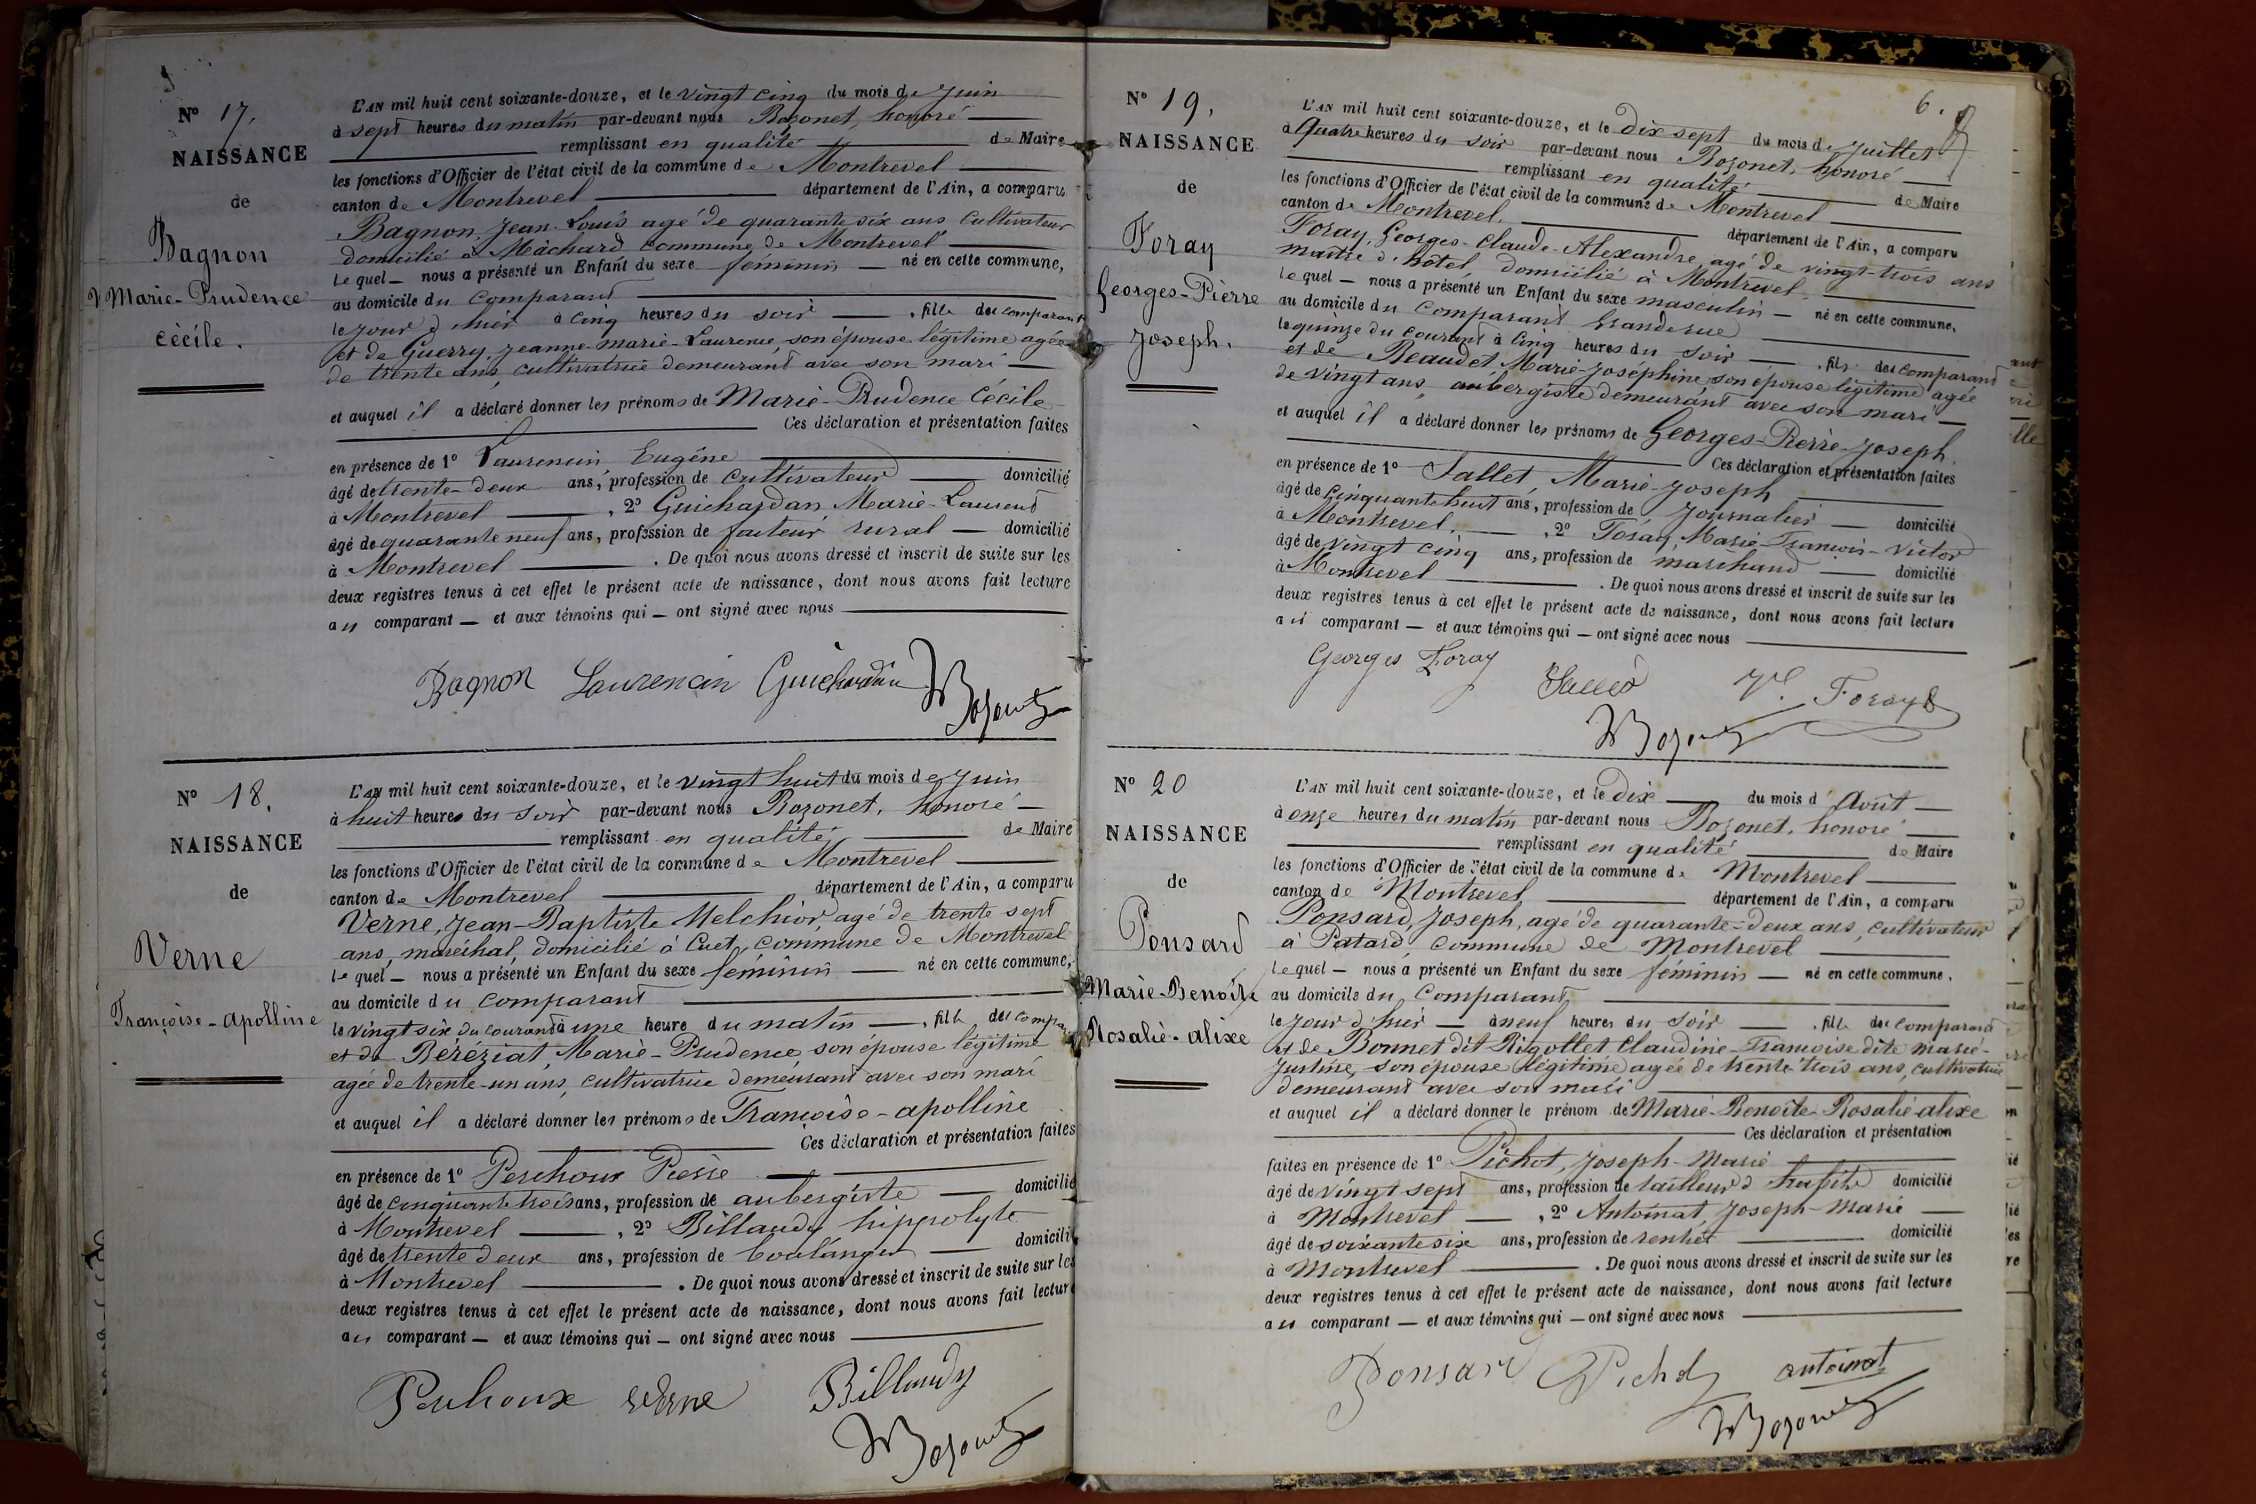 N° 17.
NAISSANCE
de
Bagnon
Marie-Prudence
Cécile.
L'AN mil huit cent soixante-douze, et le vingt cinq du mois de Juin
à sept heures du matin par-devant nous Bozonet, honoré
remplissant en qualité de Maire
les fonctions d'Officier de l'état civil de la commune de Montrevel
canton de Montrevel département de l'Ain, a comparu
Bagnon, Jean-Louis agé de quarante six ans Cultivateur
domicilié à Mâchard commune de Montrevel
Le quel — nous a présenté un Enfant du sexe féminin — né en cette commune,
au domicile du Comparant
le jour d'hier à cinq heures du soir — , fille du comparant
et de Guerry, Jeanne-Marie-Laurence, son épouse légitime agée
de trente ans, cultivatrice demeurant avec son mari —
et auquel il a déclaré donner les prénoms de Marie-Prudence Cécile
Ces déclaration et présentation faites
en présence de 1° Laurencin Eugène
âgé de trente-deux ans, profession de Cultivateur domicilié
à Montrevel , 2° Guichardan Marie-Laurent
âgé de quarante neuf ans, profession de facteur rural — domicilié
à Montrevel . De quoi nous avons dressé et inscrit de suite sur les
deux registres tenus à cet effet le présent acte de naissance, dont nous avons fait lecture
au comparant — et aux témoins qui — ont signé avec nous
Bagnon Laurencin Guichardan
Bozonet
N° 18.
NAISSANCE
de
Verne
Françoise-Apolline
L'AN mil huit cent soixante-douze, et le vingt huit du mois de Juin
à huit heures du soir par-devant nous Bozonet, honoré —
remplissant en qualité de Maire
les fonctions d'Officier de l'état civil de la commune de Montrevel
canton de Montrevel département de l'Ain, a comparu
Verne, Jean-Baptiste Melchior, agé de trente sept
ans, maréchal, domicilié à Cuet, commune de Montrevel
le quel — nous a présenté un Enfant du sexe féminin — né en cette commune,
au domicile du comparant
le vingt six du courant à une heure du matin — , fille du compa
et de Béréziat, Marie-Prudence, son épouse légitime
agée de trente-un ans, cultivatrice demeurant avec son mari
et auquel il a déclaré donner les prénoms de Françoise-apolline
Ces déclaration et présentation faites
en présence de 1° Perchoux Pierre
âgé de cinquante trois ans, profession de aubergiste — domicilié
à Montrevel , 2° Billaudy hippolyte
âgé de trente deux ans, profession de boulanger — domicilié
à Montrevel . De quoi nous avons dressé et inscrit de suite sur les
deux registres tenus à cet effet le présent acte de naissance, dont nous avons fait lecture
au comparant — et aux témoins qui — ont signé avec nous
Perchoux Verne Billaudy
Bozonet
6.
N° 19.
NAISSANCE
de
Foray
Georges-Pierre
Joseph.
L'AN mil huit cent soixante-douze, et le Dix sept du mois de Juillet
à Quatre heures du soir par-devant nous Bozonet, honoré
remplissant en qualité de Maire
les fonctions d'Officier de l'état civil de la commune de Montrevel
canton de Montrevel. département de l'Ain, a comparu
Foray, Georges-Claude-Alexandre, agé de vingt-trois ans
maître d'hôtel domicilié à Montrevel
Le quel — nous a présenté un Enfant du sexe masculin — né en cette commune,
au domicile du Comparant Grande rue
le quinze du courant à cinq heures du soir — , fils du comparant
et de Beaudet, Marie-Joséphine, son épouse légitime agée
de vingt ans, aubergiste demeurant avec son mari —
et auquel il a déclaré donner les prénoms de Georges-Pierre-Joseph.
Ces déclaration et présentation faites
en présence de 1° Sallet, Marie-Joseph
âgé de cinquante huit ans, profession de Journalier — domicilié
à Montrevel. , 2° Foray, Marie-François-Victor
âgé de vingt cinq ans, profession de marchand — domicilié
à Montrevel . De quoi nous avons dressé et inscrit de suite sur les
deux registres tenus à cet effet le présent acte de naissance, dont nous avons fait lecture
au comparant — et aux témoins qui — ont signé avec nous
Georges Foray Sallet Vr. Foray
Bozonet
N° 20
NAISSANCE
de
Ponsard
Marie-Benoîte
Rosalie-alixe
L'AN mil huit cent soixante-douze, et le Dix du mois d'Août —
à onze heures du matin par-devant nous Bozonet, honoré
remplissant en qualité de Maire
les fonctions d'Officier de l'état civil de la commune de Montrevel
canton de Montrevel département de l'Ain, a comparu
Ponsard, Joseph, agé de quarante-deux ans, cultivateur
à Patard commune de Montrevel
Le quel — nous a présenté un Enfant du sexe féminin — né en cette commune,
au domicile du Comparant
le jour d'hier — à neuf heures du soir — , fille du comparant
et de Bonnet dit Rigollet Claudine-Françoise dite Marie-
Justine, son épouse légitime agée de trente trois ans, cultivatrice
demeurant avec son mari
et auquel il a déclaré donner le prénom de Marie-Benoîte-Rosalie-alixe
Ces déclaration et présentation
faites en présence de 1° Pichot, Joseph-Marie
âgé de vingt sept ans, profession de tailleur d'habits domicilié
à Montrevel — , 2° Antoinat, Joseph-Marie —
âgé de soixante six ans, profession de rentier domicilié
à Montrevel . De quoi nous avons dressé et inscrit de suite sur les
deux registres tenus à cet effet le présent acte de naissance, dont nous avons fait lecture
au comparant — et aux témoins qui — ont signé avec nous
Ponsard Pichot antoinat
Bozonet